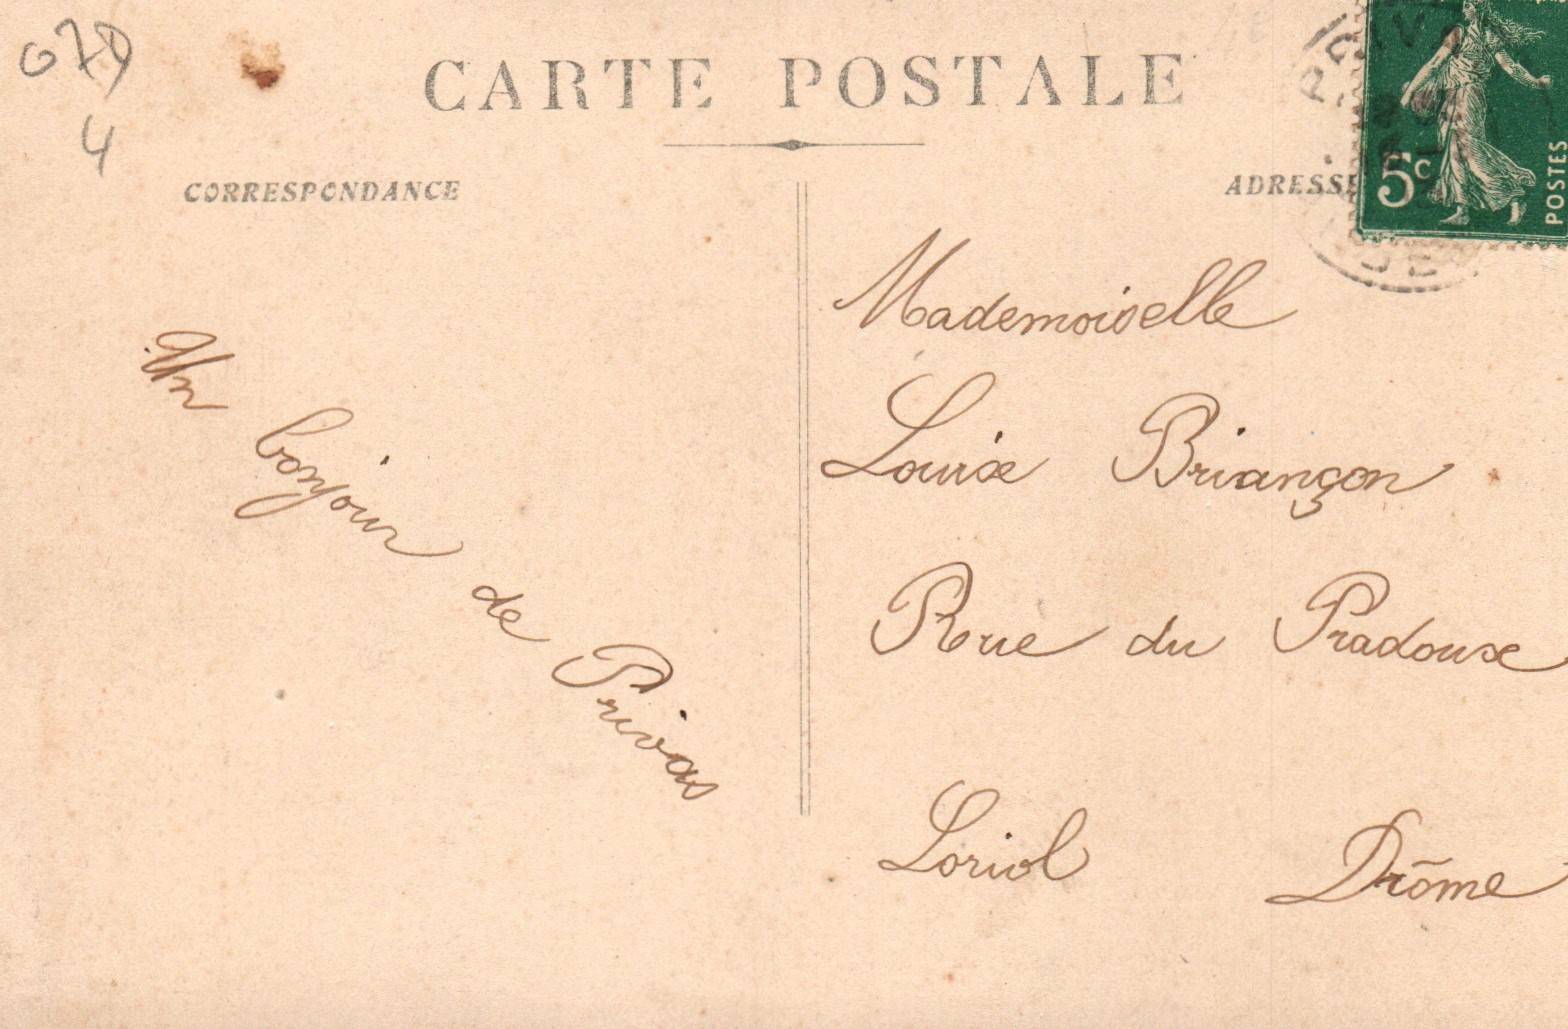 07D
4
CARTE POSTALE
CORRESPONDANCE
ADRESSE
5c
POSTES
Un bonjour de Privas
Mademoiselle
Louise Briançon
Rue du Pradoux
Loriol Drôme